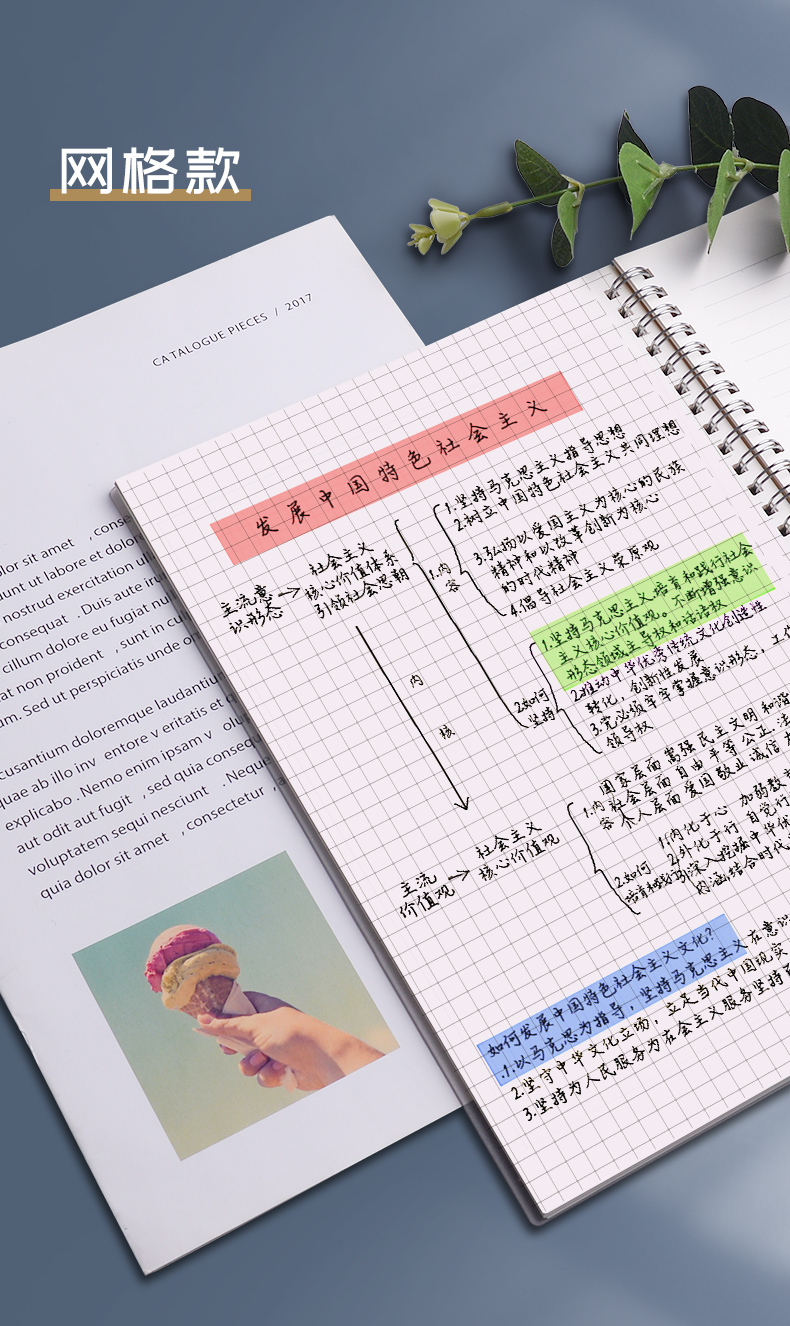 网格款
CATALOGUE PIECES / 2017
olor sit amet , conse
dunt ut labore et dolor
nostrud exercitation ul
consequat . Duis aute iru
cillum dolore eu fugiat nu
at non proident , sunt in cu
m. Sed ut perspiciatis unde o
cusantium doloremque laudantium
quae ab illo inv entore v eritatis et q
explicabo . Nemo enim ipsam v olu
aut odit aut fugit , sed quia consequ
voluptatem sequi nesciunt . Neque
quia dolor sit amet , consectetur , a
发展中国特色社会主义
主流意
识形态
社会主义
核心价值体系
引领社会思潮
1.内
容
1.坚持马克思主义指导思想
2.树立中国特色社会主义共同理想
3.弘扬以爱国主义为核心的民族
精神和以改革创新为核心
的时代精神
4.倡导社会主义荣辱观
2.如何
坚持
1.坚持马克思主义培育和践行社会
主义核心价值观。不断增强意识
形态领域主导权和话语权
2.推动中华优秀传统文化创造性
转化,创新性发展
3.党必须牢牢掌握意识形态,工作
领导权
内
核
主流
价值观
社会主义
核心价值观
1.内
容
国家层面富强民主文明和谐
社会层面自由平等公正法
个人层面爱国敬业诚信友
2.如何
培育和践行
1.内化于心 加弱教
2.外化于行 自觉行
3.深入挖掘中华优
内涵,结合时代
如何发展中国特色社会主义文化?
1.以马克思为指导,坚持马克思主义在意识
2.坚守中华文化立场,立足当代中国现实
3.坚持为人民服务为在会主义服务坚持